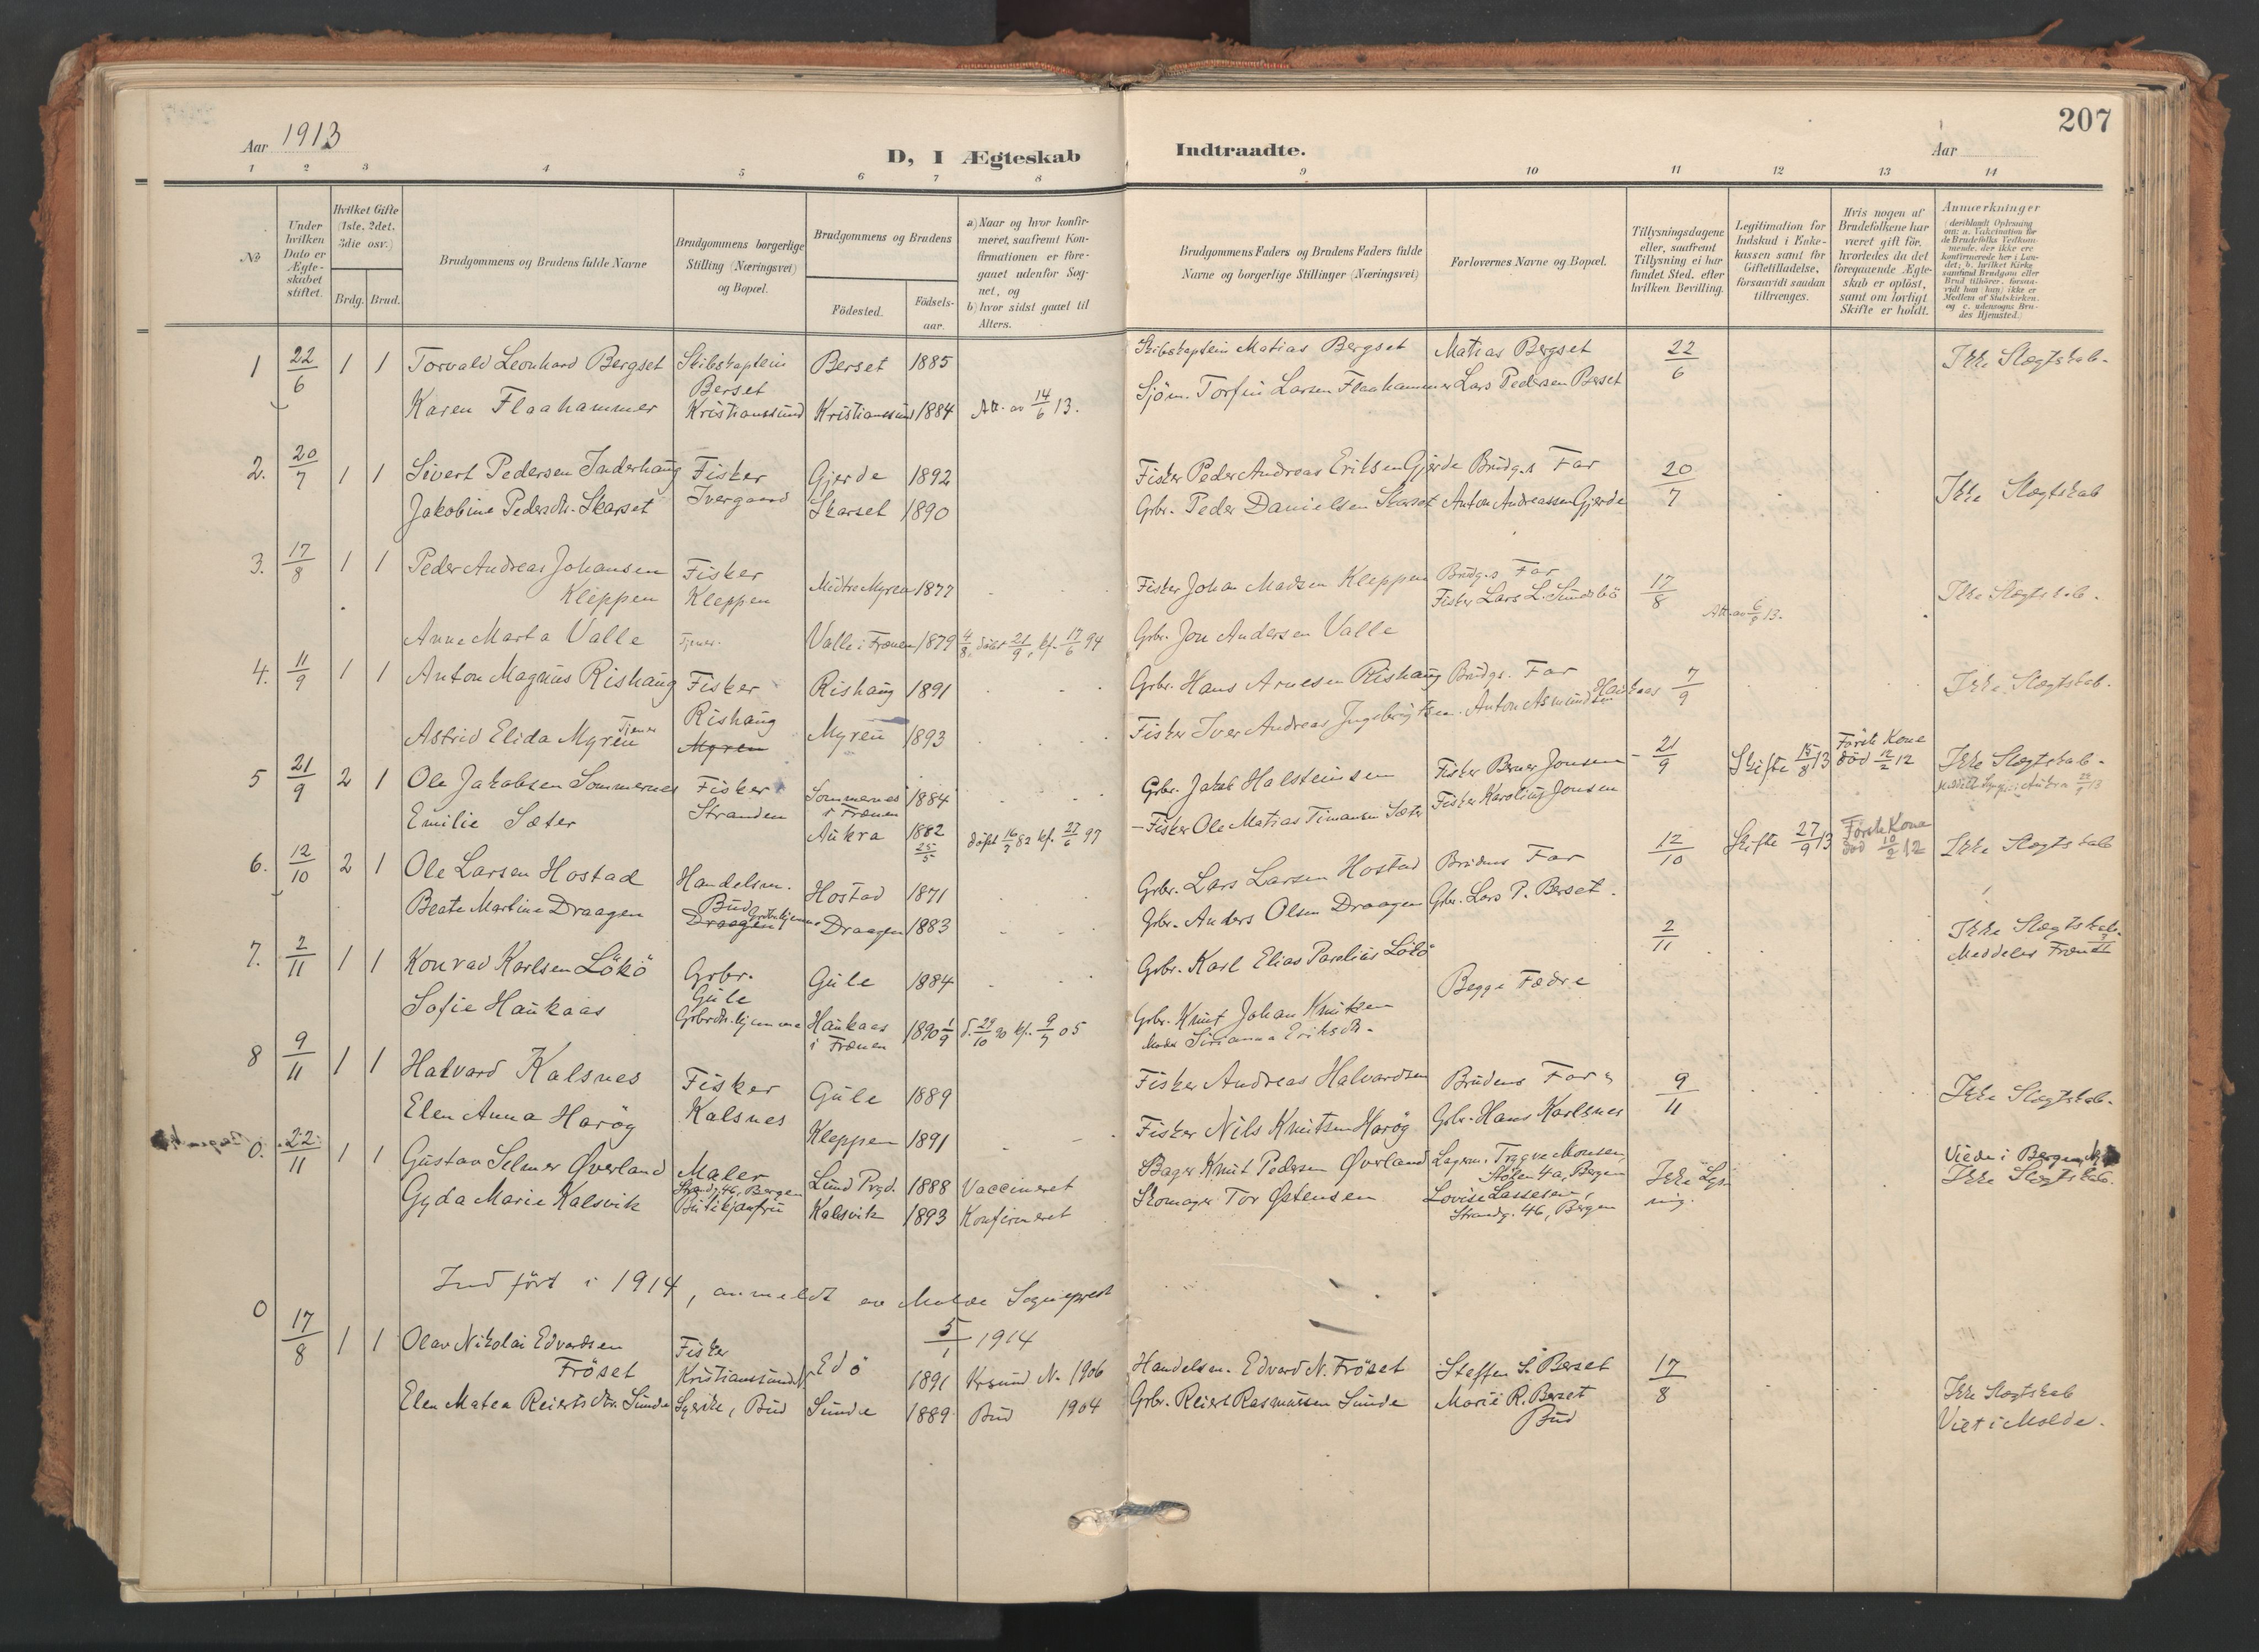 207
Aar 1913
D, I Ægteskab Indtraadte.
Aar
1 2 3 4 5 6 7 8 9 10 11 12 13 14
No
Under hvilken Dato er Ægteskabet stiftet.
Hvilket Gifte (1ste, 2det, 3die osv.)
Brdg. Brud.
Brudgommens og Brudens fulde Navne
Brudgommens borgerlige Stilling (Næringsvei) og Bopæl.
Brudgommens og Brudens
Födested. Födselsaar.
a) Naar og hvor konfirmeret, saafremt Konfirmationen er foregaaet udenfor Sognet, og
b) hvor sidst gaaet til Alters.
Brudgommens Faders og Brudens Faders fulde Navne og borgerlige Stillinger (Næringsvei)
Forlovernes Navne og Bopæl.
Tillysningsdagene eller, saafremt Tillysning ei har fundet Sted, efter hvilken Bevilling.
Legitimation for Indskud i Enkekassen samt for Giftetilladelse, forsaavidt saadan tiltrænges.
Hvis nogen af Brudefolkene har været gift för, hvorledes da det foregaaende Ægteskab er oplöst, samt om lovligt Skifte er holdt.
Anmærkninger
(deriblandt Oplysning om: a. Vakcination for de Brudefolks Vedkommende, der ikke ere konfirmerede her i Landet; b. hvilket Kirkesamfund Brudgom eller Brud tilhører, forsaavidt han (hun) ikke er Medlem af Statskirken, og c. udensogns Brudes Hjemsted.)
1 22/6 1 1 Torvald Leonhard Bergset Skibskaptein Berset Berset 1885 Skibskaptein Matias Bergset Matias Bergset 22/6 Ikke Slægtskab.
Karen Flaahammer Kristianssund Kristianssund 1884 Att. av 14/6 13. Sjöm. Torfin Larsen Flaahammer Lars Pedersen Berset
2. 20/7 1 1 Sivert Pedersen Inderhaug Fisker Gjerde 1892 Fisker Peder Andreas Eriksen Gjerde Brudg.s Far 20/7 Ikke Slægtskab
Jakobine Pedersdtr. Skarset Ivergaard Skarset 1890 Grbr. Peder Danielsen Skarset Anton Andreassen Gjerde
3. 17/8 1 1 Peder Andreas Johansen Kleppen Fisker Kleppen Midtre Myren 1877 Fisker Johan Madsen Kleppen Brudg.s Far 17/8 Ikke Slægtskab.
Fisker Lars L. Sundsbö Att. av 6/8 13.
Anne Marta Valle Tjener. Valle i Frænen 1879 4/8, döbt 21/9, kf. 17/6 94 Grbr. Jon Andersen Valle
4. 11/9 1 1 Anton Magnus Rishaug Fisker Rishaug Rishaug 1891 Grbr. Hans Arnesen Rishaug Brudgs. Far 7/9 Ikke Slægtskab.
Astrid Elida Myren Tjener Myren Myren 1893 Fisker Iver Andreas Ingebrigtsen. Anton Asmundsen Haukaas
5 21/9 2 1 Ole Jakobsen Sommernes Fisker Stranden Sommernes i Frænen 1884 Grbr. Jakob Halsteinsen Fisker Berner Jonsen 21/9 Skifte 15/8 13 Förste Kone död 12/2 12 Ikke Slægtskab.
Emilie Sæter Aukra 1882 25/5 döpt 16/7 82 kf. 27/6 97 Fisker Ole Matias Timansen Sæter Fisker Karolius Jonsen
6. 12/10 2 1 Ole Larsen Hostad Handelsm. Bud Hostad 1871 Grbr. Lars Larsen Hostad Brudens Far 12/10 Skifte 27/9 13 Förste Kone död 10/2 12 Ikke Slægtskab
Beate Martine Draagen Draagen Draagen 1883 Grbr. Anders Olsen Draagen Grbr. Lars P. Berset.
7. 2/11 1 1 Konrad Karlsen Lökö Grbr. Gule Gule 1884 Grbr. Karl Elias Paulius Lökö Begge Fædre 2/11 Ikke Slægtskab.
Meddeler Fræn
Sofie Haukaas Grbrdtr. hjemme Haukaas i Frænen 1890 1/9 d. 29/10 90 kf. 9/7 05 Grbr. Knut Johan Knutsen
Moder Sirianna Eriksdtr.
8 9/11 1 1 Halvard Kalsnes Fisker Kalsnes Gule 1889 Fisker Andreas Halvardsen Brudens Far 9/11 Ikke Slægtskab.
Elen Anna Harög Kleppen 1891 Fisker Nils Knutsen Harög Grbr. Hans Karlsnes
0. 22/11 1 1 Gustav Selmer Øverland Maler Strandg. 46, Bergen Lund Prgd. 1888 Vaccineret Bager Knut Pedersen Øverland Lagerm. Trygve Monsen, Stölen 4a, Bergen Ikke Lysning. Viede i Bergen
Ikke Slægtskab.
Gyda Marie Kalsvik Butikjomfru Kalsvik 1893 Konfirmeret Skomager Tor Østensen Lovise Lassesen, Strandg. 46, Bergen
Indfört i 1914, anmeldt av Molde Sogneprest 5/1 1914
0 17/8 1 1 Olav Nikolai Edvardsen Fröset Fisker Kristianssund N. Edö 1891 Krsund N. 1906 Handelsm. Edvard N. Fröset Steffen S. Berset 17/8 Ikke Slægtskab
Elen Matea Reiertsdtr. Sunde Syerske, Bud Sunde 1889 Bud 1904 Grbr. Reiert Rasmussen Sunde Marie R. Berset Bud Viet i Molde.